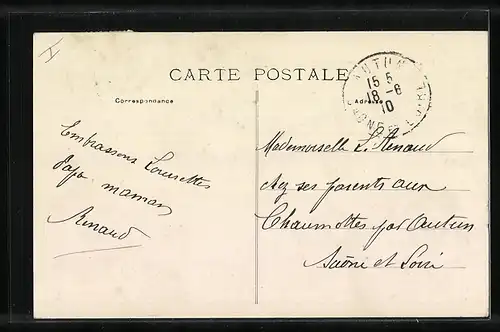 CARTE POSTALE
Correspondance
Adresse
AUTUN
15 5
18 -6
10
SAONE-ET-LOIRE
Embrassons Lourettes
Papa maman
Renaud
Mademoiselle L. Renaud
chez ses parents aux
Chaumottes par Autun
Saône et Loire